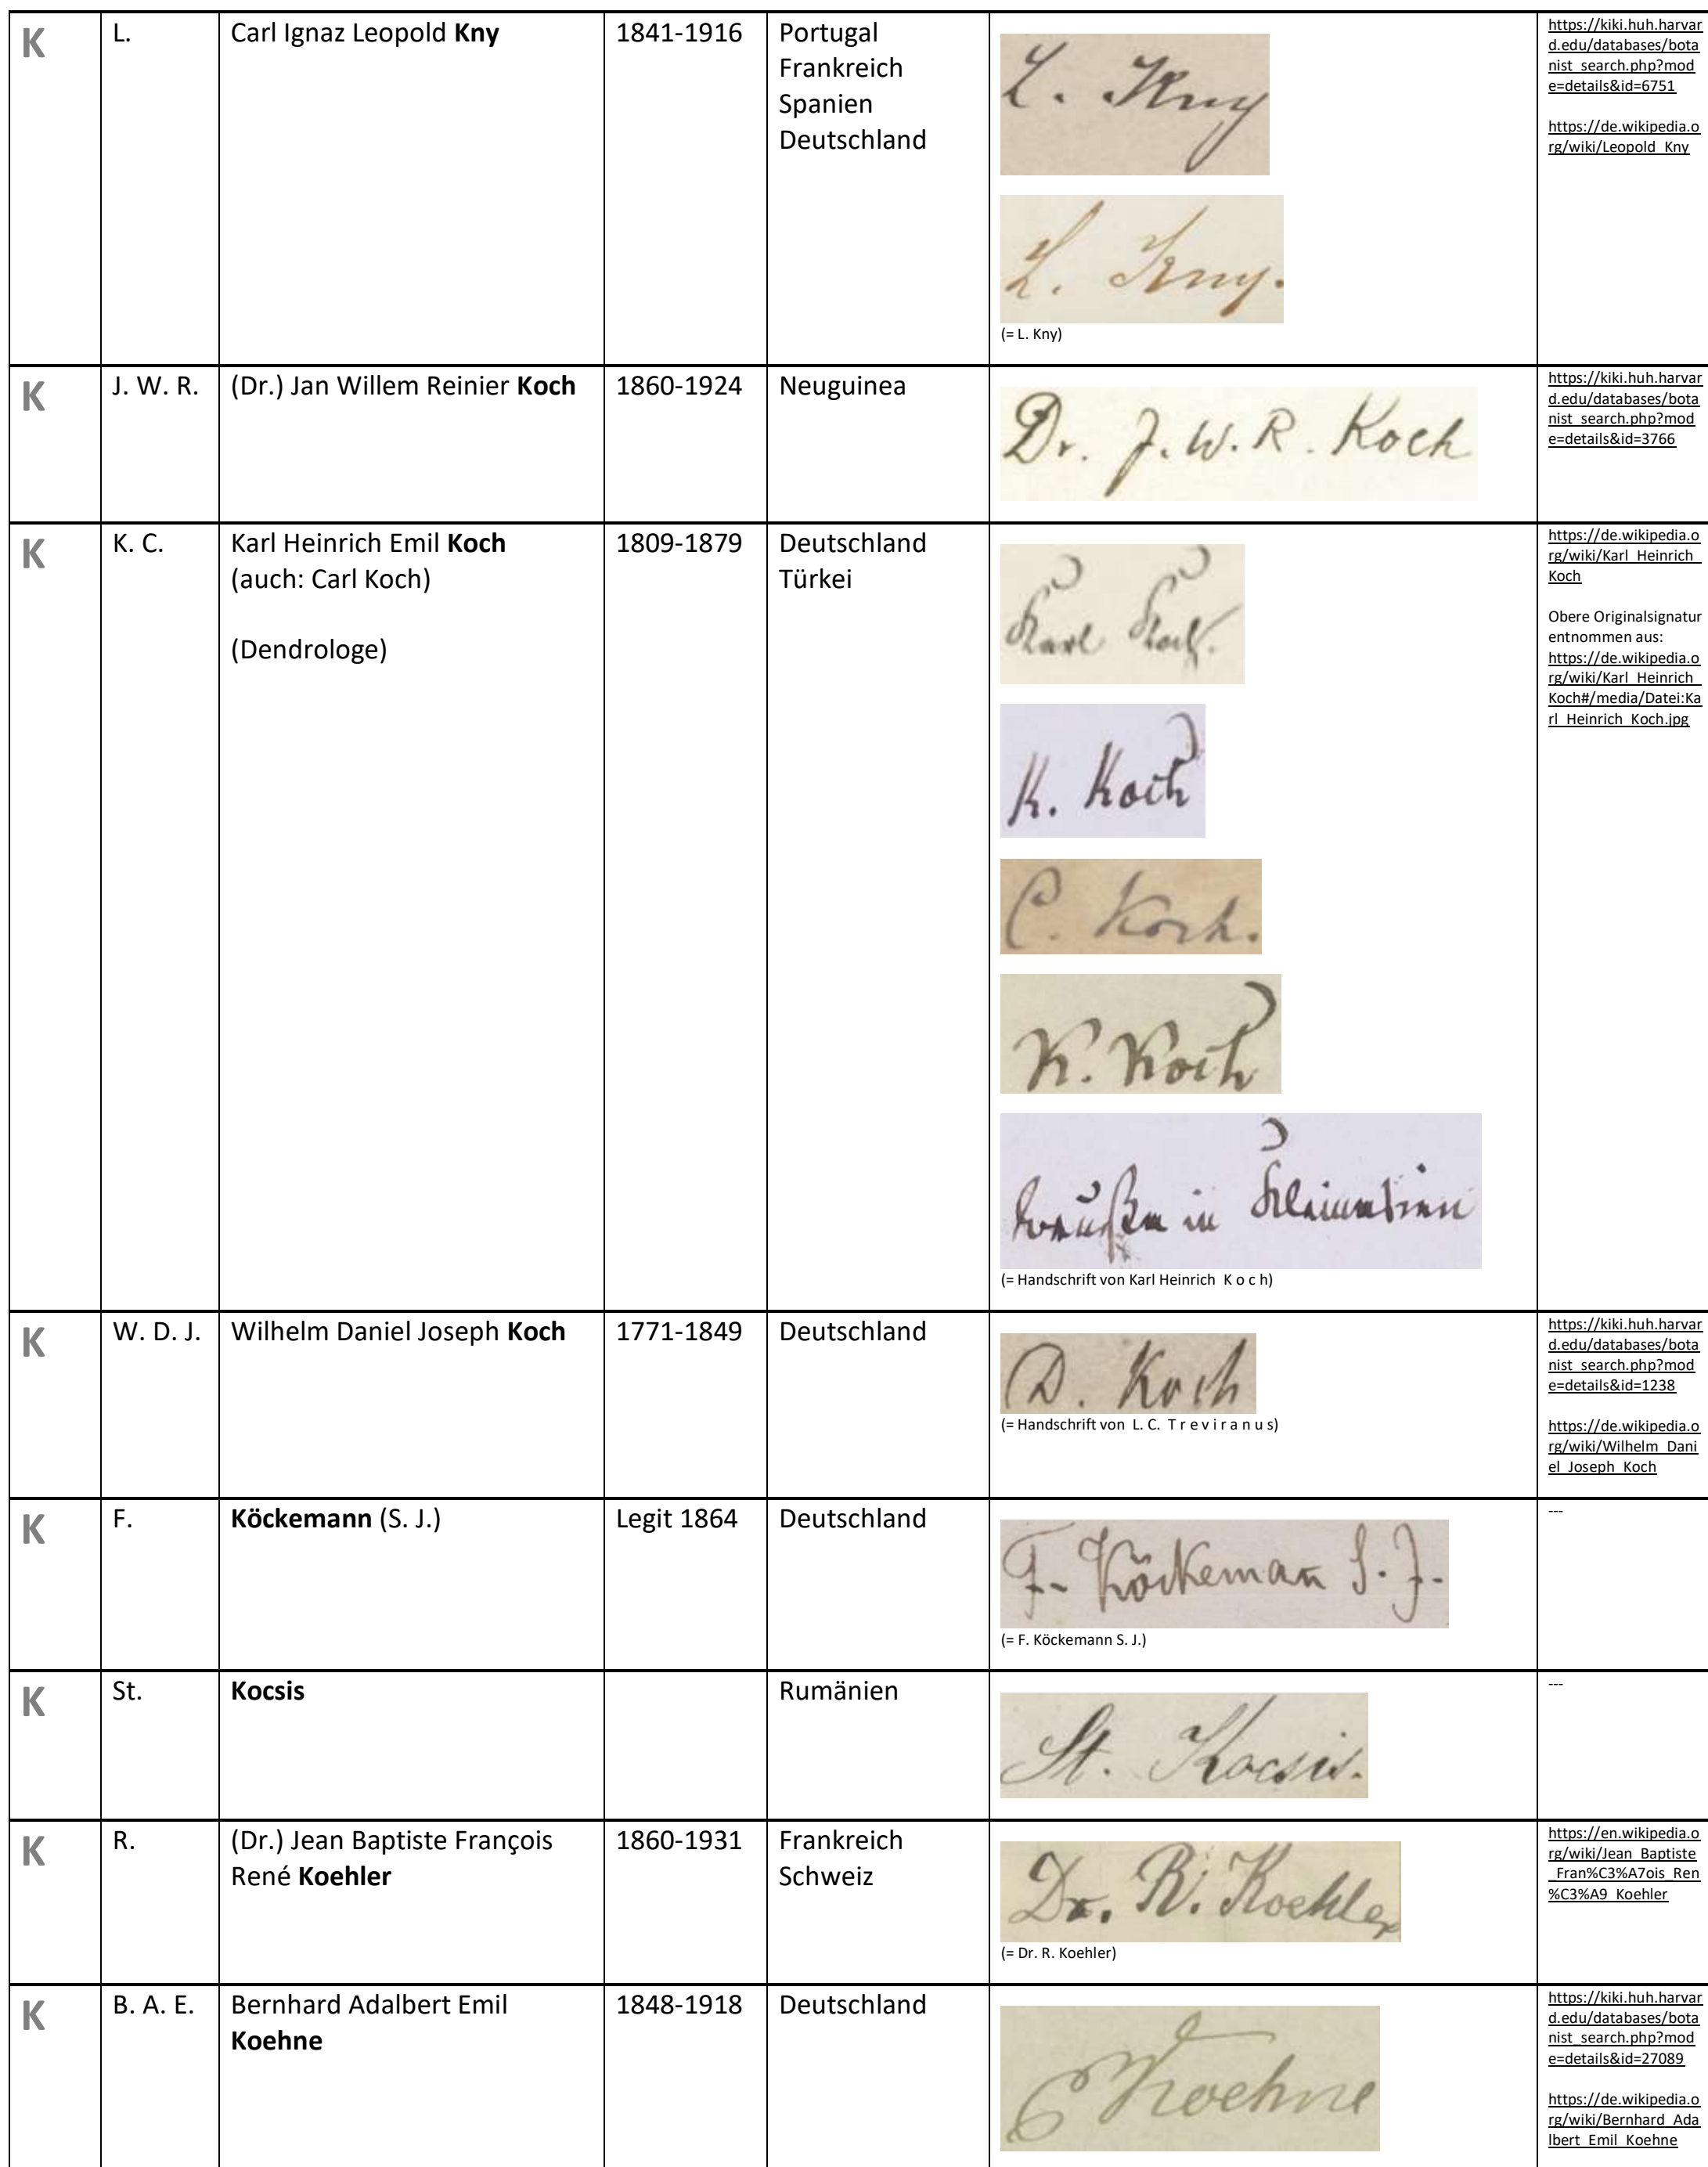 K
L.
Carl Ignaz Leopold Kny
1841-1916
Portugal
Frankreich
Spanien
Deutschland
L. Kny
L. Kny.
(= L. Kny)
https://kiki.huh.harvar
d.edu/databases/bota
nist_search.php?mod
e=details&id=6751
https://de.wikipedia.o
rg/wiki/Leopold_Kny
K
J. W. R.
(Dr.) Jan Willem Reinier Koch
1860-1924
Neuguinea
Dr. J. W. R. Koch
https://kiki.huh.harvar
d.edu/databases/bota
nist_search.php?mod
e=details&id=3766
K
K. C.
Karl Heinrich Emil Koch
(auch: Carl Koch)
(Dendrologe)
1809-1879
Deutschland
Türkei
Karl Koch.
K. Koch
C. Koch.
K. Koch
in Kleinasien
(= Handschrift von Karl Heinrich K o c h)
https://de.wikipedia.o
rg/wiki/Karl_Heinrich_
Koch
Obere Originalsignatur
entnommen aus:
https://de.wikipedia.o
rg/wiki/Karl_Heinrich_
Koch#/media/Datei:Ka
rl_Heinrich_Koch.jpg
K
W. D. J.
Wilhelm Daniel Joseph Koch
1771-1849
Deutschland
D. Koch
(= Handschrift von L. C. T r e v i r a n u s)
https://kiki.huh.harvar
d.edu/databases/bota
nist_search.php?mod
e=details&id=1238
https://de.wikipedia.o
rg/wiki/Wilhelm_Dani
el_Joseph_Koch
K
F.
Köckemann (S. J.)
Legit 1864
Deutschland
F. Köckeman̄ S. J.
(= F. Köckemann S. J.)
---
K
St.
Kocsis
Rumänien
St. Kocsis.
---
K
R.
(Dr.) Jean Baptiste François
René Koehler
1860-1931
Frankreich
Schweiz
Dr. R. Koehler
(= Dr. R. Koehler)
https://en.wikipedia.o
rg/wiki/Jean_Baptiste
_Fran%C3%A7ois_Ren
%C3%A9_Koehler
K
B. A. E.
Bernhard Adalbert Emil
Koehne
1848-1918
Deutschland
E Koehne
https://kiki.huh.harvar
d.edu/databases/bota
nist_search.php?mod
e=details&id=27089
https://de.wikipedia.o
rg/wiki/Bernhard_Ada
lbert_Emil_Koehne